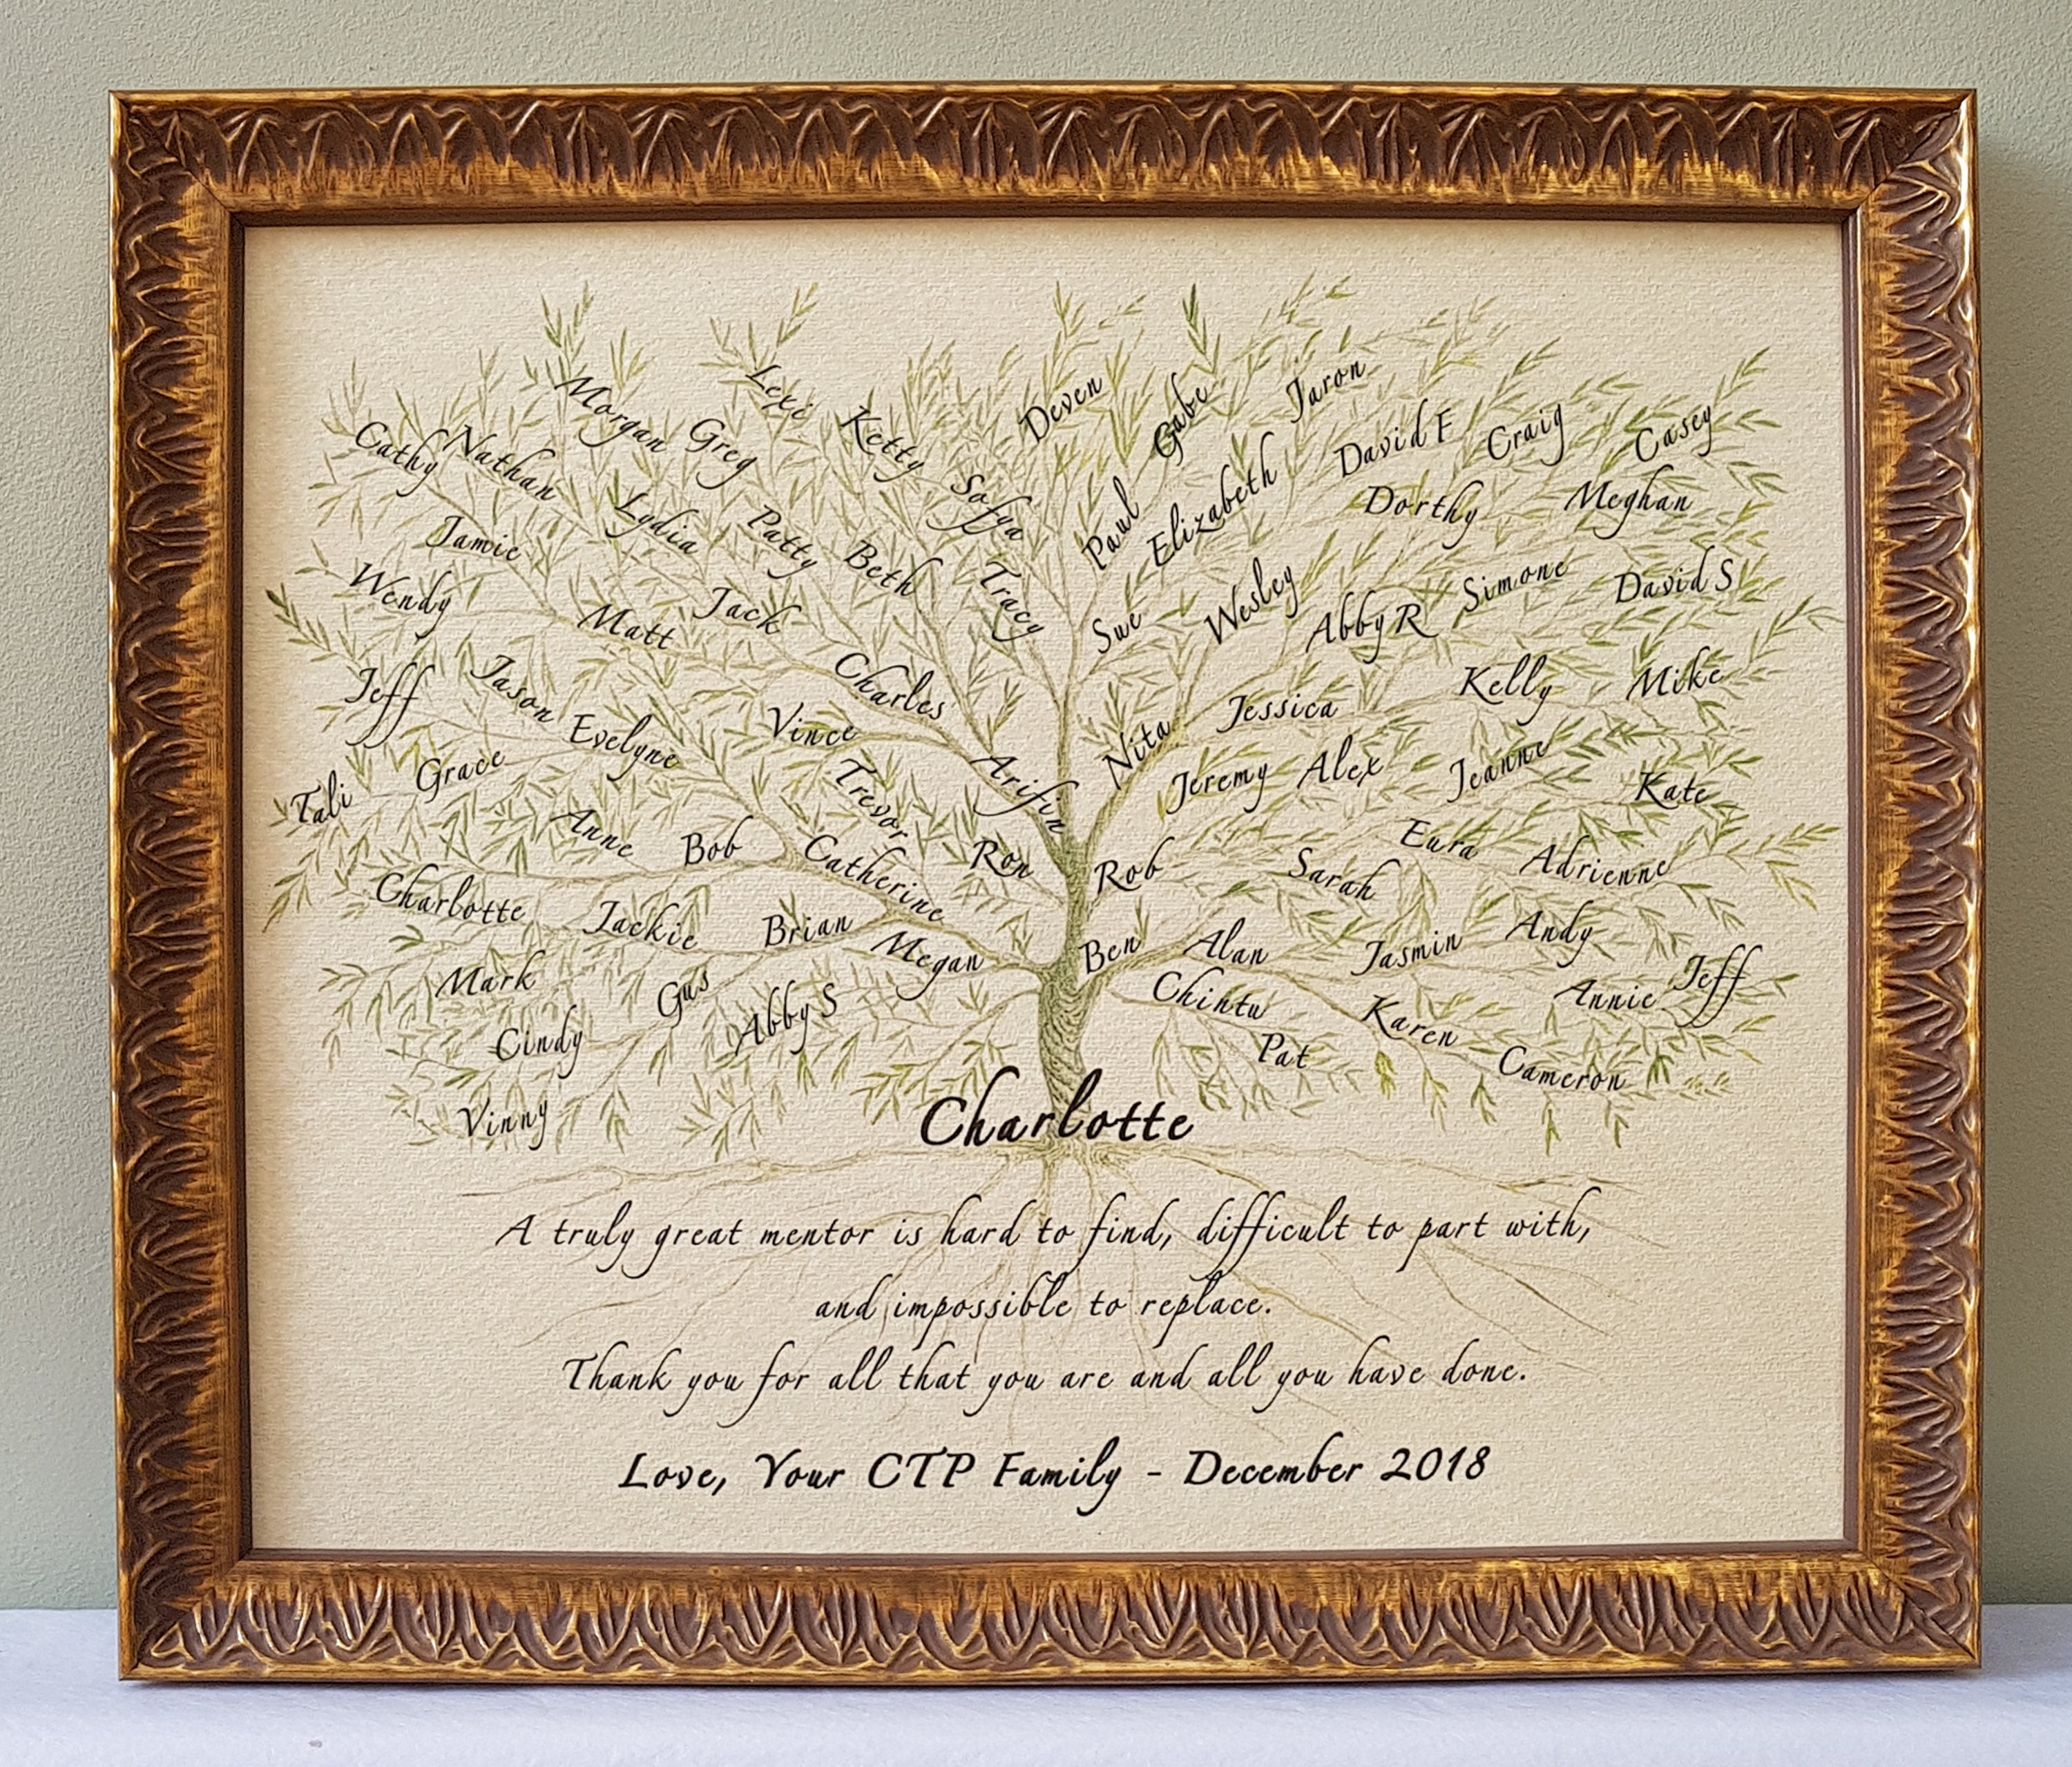 Lexi
Deven
Gabe
Jaron
Morgan
Greg
Ketty
David F
Craig
Casey
Cathy
Nathan
Lydia
Patty
Sofya
Paul
Elizabeth
Dorthy
Meghan
Jamie
Beth
Tracy
Wendy
Matt
Jack
Sue
Wesley
Abby R
Simone
David S
Jeff
Jason
Evelyne
Vince
Charles
Nita
Jessica
Kelly
Mike
Tali
Grace
Trevor
Arifin
Jeremy
Alex
Jeanne
Kate
Anne
Bob
Catherine
Ron
Rob
Sarah
Eura
Adrienne
Charlotte
Jackie
Brian
Megan
Ben
Alan
Jasmin
Andy
Mark
Gus
Abby S
Chintu
Karen
Annie
Jeff
Cindy
Pat
Cameron
Vinny
Charlotte
A truly great mentor is hard to find, difficult to part with,
and impossible to replace.
Thank you for all that you are and all you have done.
Love, Your CTP Family - December 2018